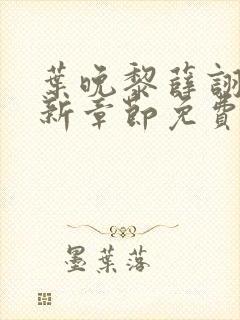 葉晚黎薛詡
新章節免費
墨葉落